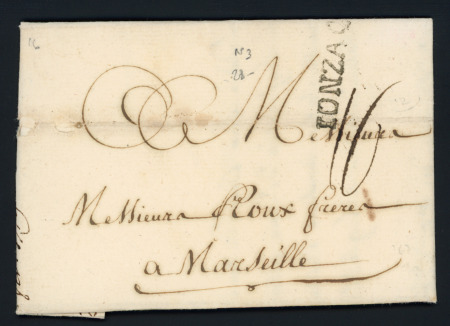 16
N3
28-
JONZAC
Messieurs
16
Messieurs Roux freres
a Marseille